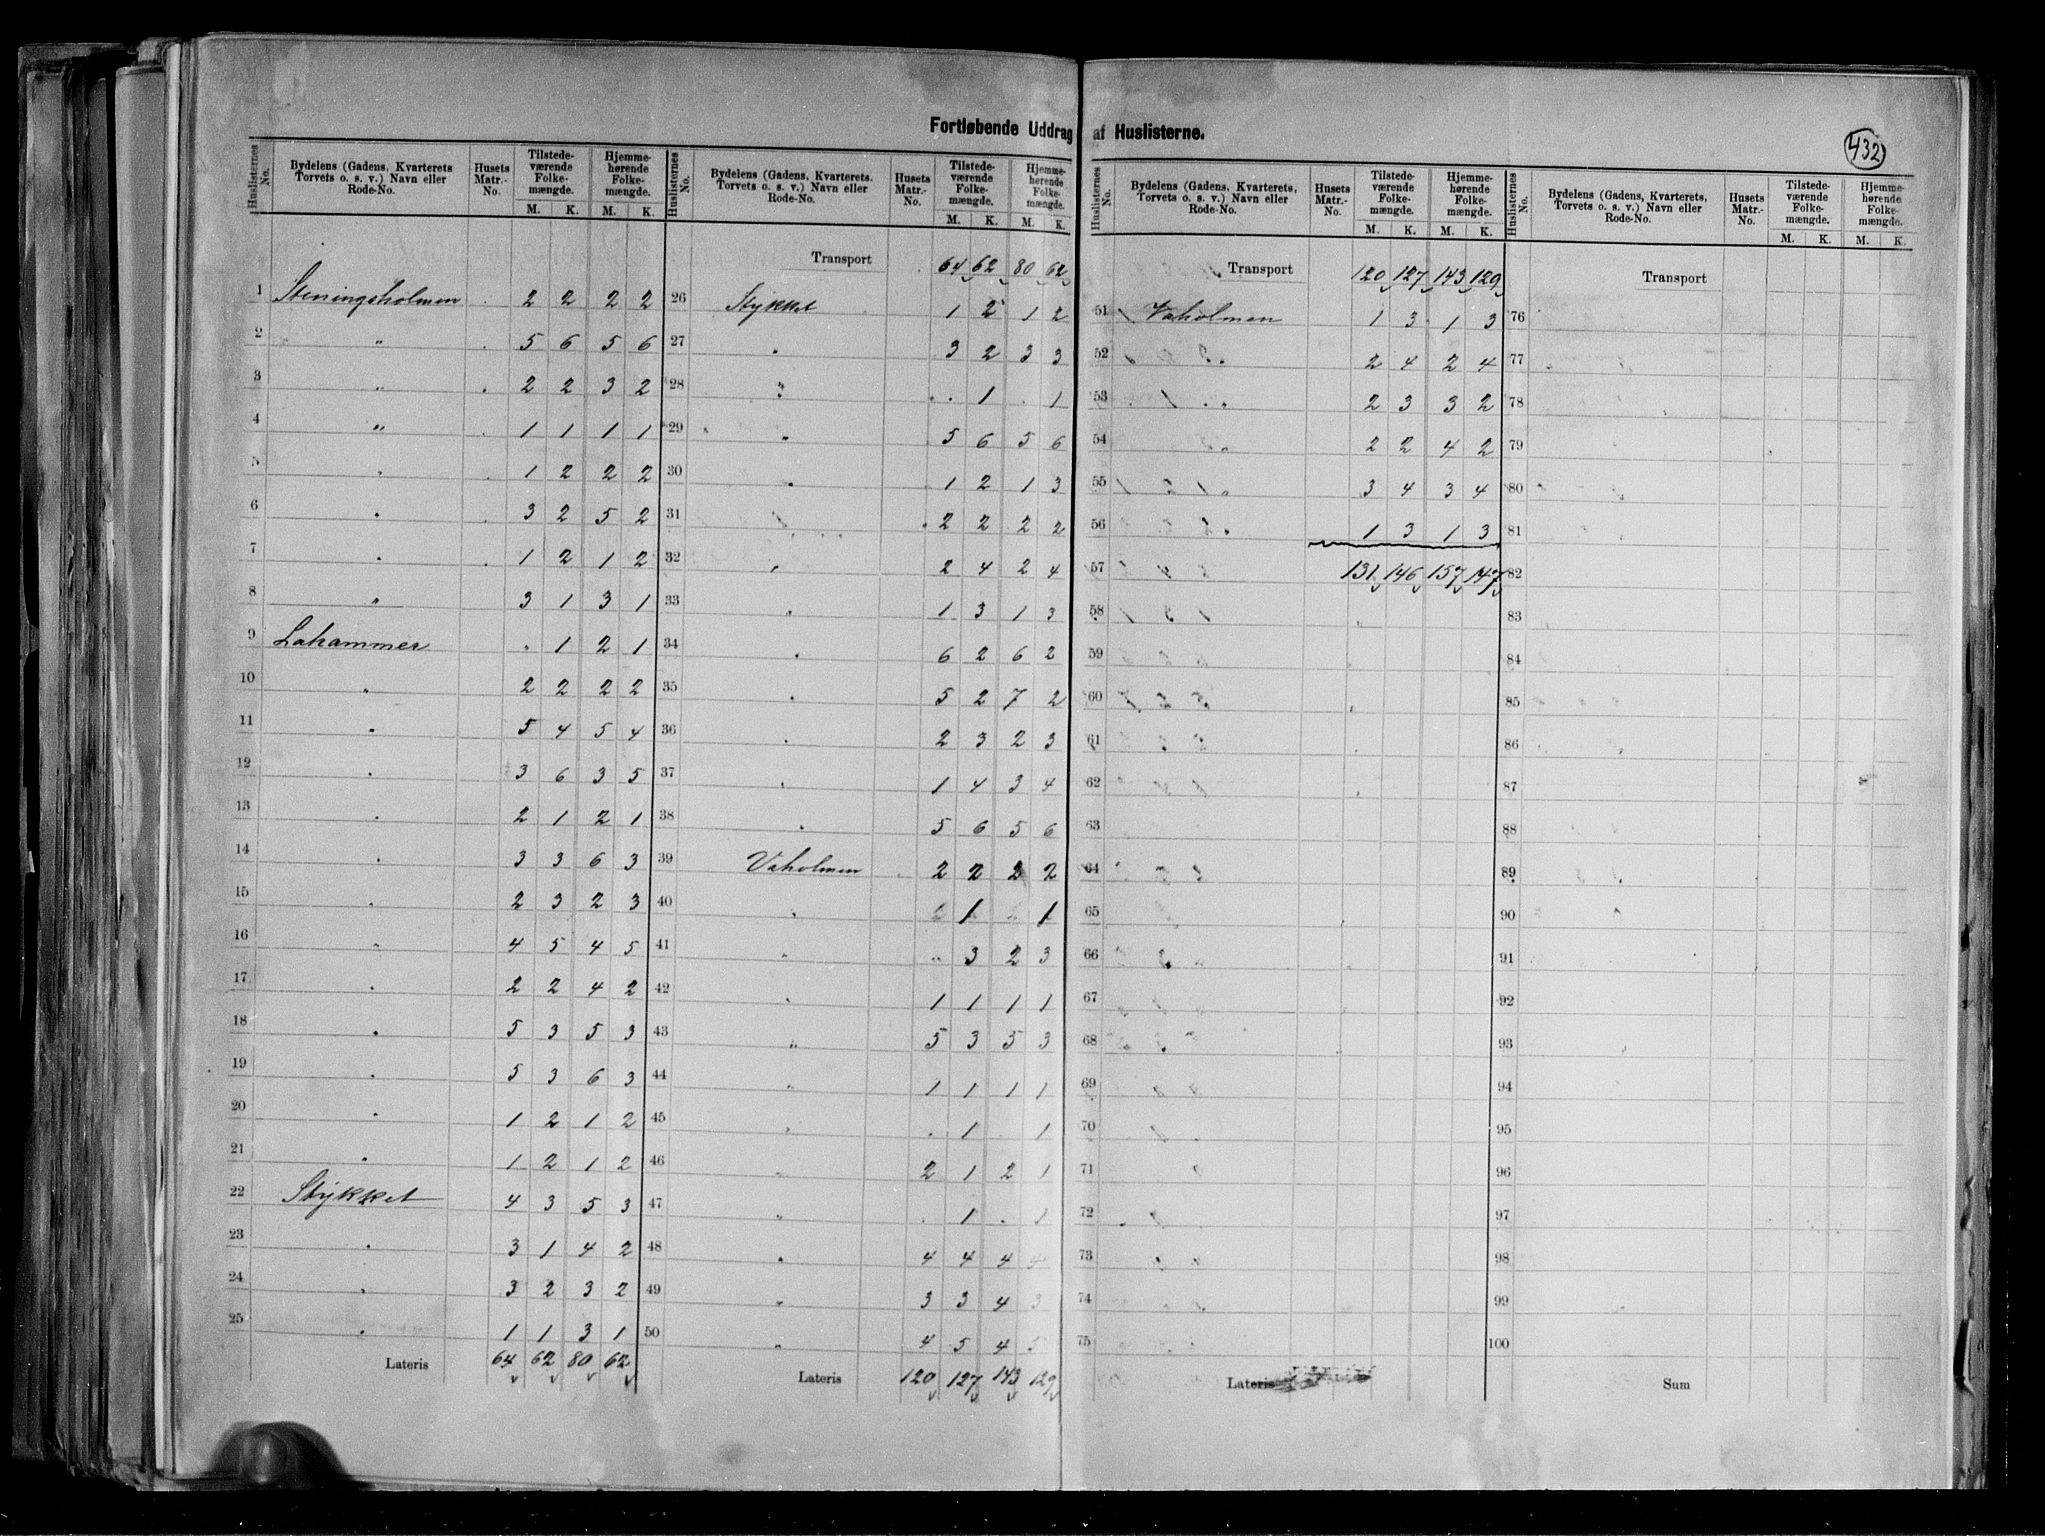 Fortløbende Uddrag af Huslisterne.
432
Huslisternes No. Bydelens (Gadens, Kvarterets Torvets o. s. v.) Navn eller Rode-No. Husets Matr.-No. Tilstedeværende Folkemængde. M. K. Hjemmehørende Folkemængde. M. K.
1 Steningsholmen 2 2 2 2
2 " 5 6 5 6
3 " 2 2 3 2
4 " 1 1 1 1
5 " 1 2 2 2
6 " 3 2 5 2
7 " 1 2 1 2
8 " 3 1 3 1
9 Lahammer " 1 2 1
10 " 2 2 2 2
11 " 5 4 5 4
12 " 3 6 3 5
13 " 2 1 2 1
14 " 3 3 6 3
15 " 2 3 2 3
16 " 4 5 4 5
17 " 2 2 4 2
18 " 5 3 5 3
19 " 5 3 6 3
20 " 1 2 1 2
21 " 1 2 1 2
22 Stykket 4 3 5 3
23 " 3 1 4 2
24 " 3 2 3 2
25 " 1 1 3 1
Lateris 64 62 80 62
Huslisternes No. Bydelens (Gadens, Kvarterets, Torvets o. s. v.) Navn eller Rode-No. Husets Matr.-No. Tilstedeværende Folkemængde. M. K. Hjemmehørende Folkemængde. M. K.
Transport 64 62 80 62
26 Stykket 1 2 1 2
27 " 3 2 3 3
28 " . 1 . 1
29 " 5 6 5 6
30 " 1 2 1 3
31 " 2 2 2 2
32 " 2 4 2 4
33 " 1 3 1 3
34 " 6 2 6 2
35 " 5 2 7 2
36 " 2 3 2 3
37 " 1 4 3 4
38 " 5 6 5 6
39 Vaholmen 2 2 2 2
40 " 1 1
41 " " 3 2 3
42 " 1 1 1 1
43 " 5 3 5 3
44 " 1 1 1 1
45 " . 1 . 1
46 " 2 1 2 1
47 " . 1 . 1
48 " 4 4 4 4
49 " 3 3 4 3
50 " 4 5 4 5
Lateris 120 127 143 129
Huslisternes No. Bydelens (Gadens, Kvarterets, Torvets o. s. v.) Navn eller Rode-No. Husets Matr.-No. Tilstedeværende Folkemængde. M. K. Hjemmehørende Folkemængde. M. K.
Transport 120 127 143 129
51 Vaholmen 1 3 1 3
52 " 2 4 2 4
53 " 2 3 3 2
54 " 2 2 4 2
55 " 3 4 3 4
56 " 1 3 1 3
57 131 146 157 147
58
59
60
61
62
63
64
65
66
67
68
69
70
71
72
73
74
75
Lateris
Huslisternes No. Bydelens (Gadens, Kvarterets, Torvets o. s. v.) Navn eller Rode-No. Husets Matr.-No. Tilstedeværende Folkemængde. M. K. Hjemmehørende Folkemængde. M. K.
Transport
76
77
78
79
80
81
82
83
84
85
86
87
88
89
90
91
92
93
94
95
96
97
98
99
100
Sum